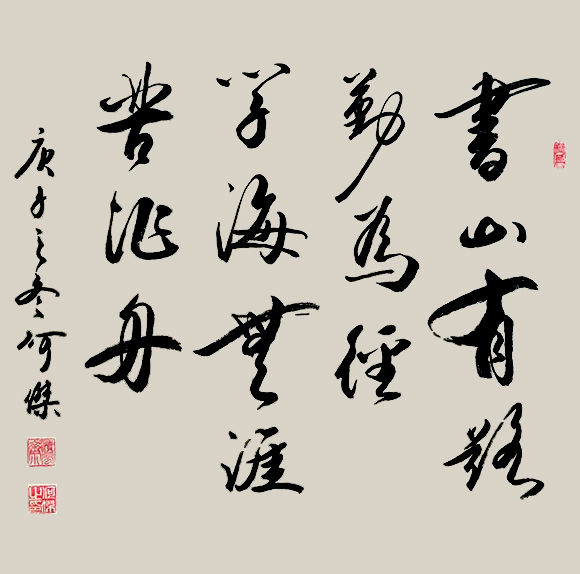 書山有路
勤為徑
学海無涯
苦作舟
庚子之冬何傑